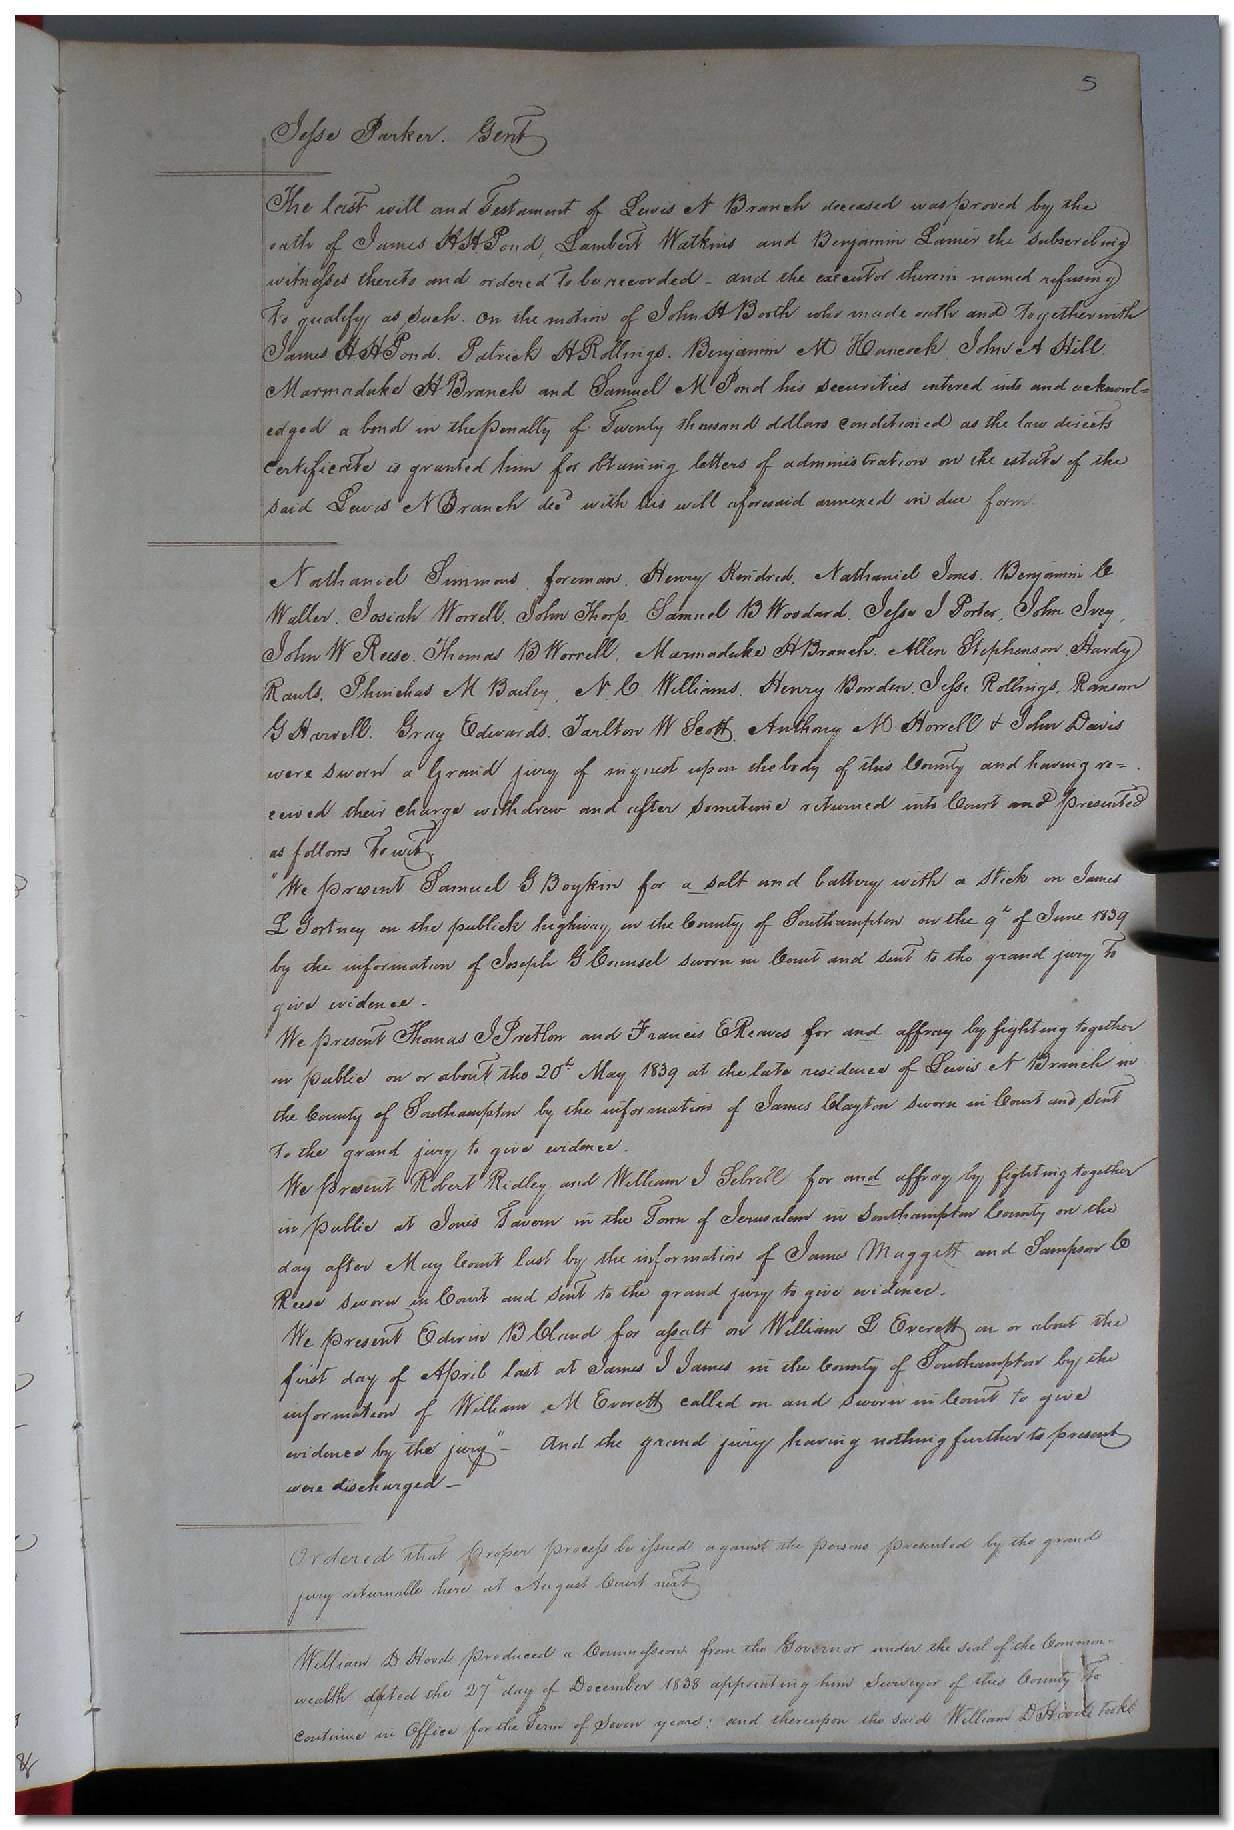 5
Jesse Parker. Gent
The last will and Testament of Lewis N Branch deceased was proved by the
oath of James H H Pond, Lambert Watkins and Benjamin Lanier the subscribing
witnesses thereto and ordered to be recorded - and the executor therein named refusing
to qualify as such. On the motion of John H Booth who made oath and together with
James H H Pond. Patrick H Rollings. Benjamin M Hancock John A Hill
Marmaduke H Branch and Samuel M Pond his securities entered into and acknowl=
edged a bond in the penalty of Twenty thousand dollars conditioned as the law directs
certificate is granted him for obtaining letters of administration on the estate of the
said Lewis N Branch decd with his will aforesaid annexed in due form.
Nathaniel Simmons foreman. Henry Kindred. Nathaniel Jones. Benjamin C
Waller. Josiah Worrell. John Thorp. Samuel B Woodard. Jesse J Porter. John Ivey.
John W Reese. Thomas B Worrell. Marmaduke H Branch. Allen Stephenson. Hardy
Rawls. Phinehas M Bailey. N C Williams. Henry Bowden. Jesse Rollings. Ransom
G Harrell. Gray Edwards. Tarlton W Scott. Anthony M Horrell & John Davis
were sworn a Grand jury of inquest upon the body of this County and having re=
ceived their charge withdrew and after sometime returned into Court and presented
as follows To wit
"We present Samuel G Boykin for a salt and battery with a stick on James
L Gortney on the publick highway in the County of Southampton on the 9t of June 1839
by the information of Joseph G Counsel sworn in Court and sent to the grand jury to
give evidence -
We present Thomas J Pretlow and Francis E Reaves for and affray by fighting together
in public on or about the 20t May 1839 at the late residence of Lewis N Branch in
the County of Southampton by the information of James Clayton sworn in Court and sent
to the grand jury to give evidence.
We present Robert Ridley and William J Sebrell for and affray by fighting together
in public at Jones Tavern in the Town of Jerusalem in Southampton County on the
day after May Court last by the information of James Maggett and Sampson C
Reese sworn in Court and sent to the grand jury to give evidence.
We present Edwin B Claud for assalt on William L Everett on or about the
first day of April last at James J James in the County of Southampton by the
information of William M Everett called on and sworn in Court to give
evidence by the jury" - And the grand jury having nothing further to present
were discharged -
Ordered that proper process be issued against the persons presented by the grand
jury returnable here at August Court next
William D Hood produced a Commission from the Governor under the seal of the Common-
wealth dated the 27t day of December 1838 appointing him Surveyor of this County To
continue in Office for the Term of Seven years; and thereupon the said William D Hood took